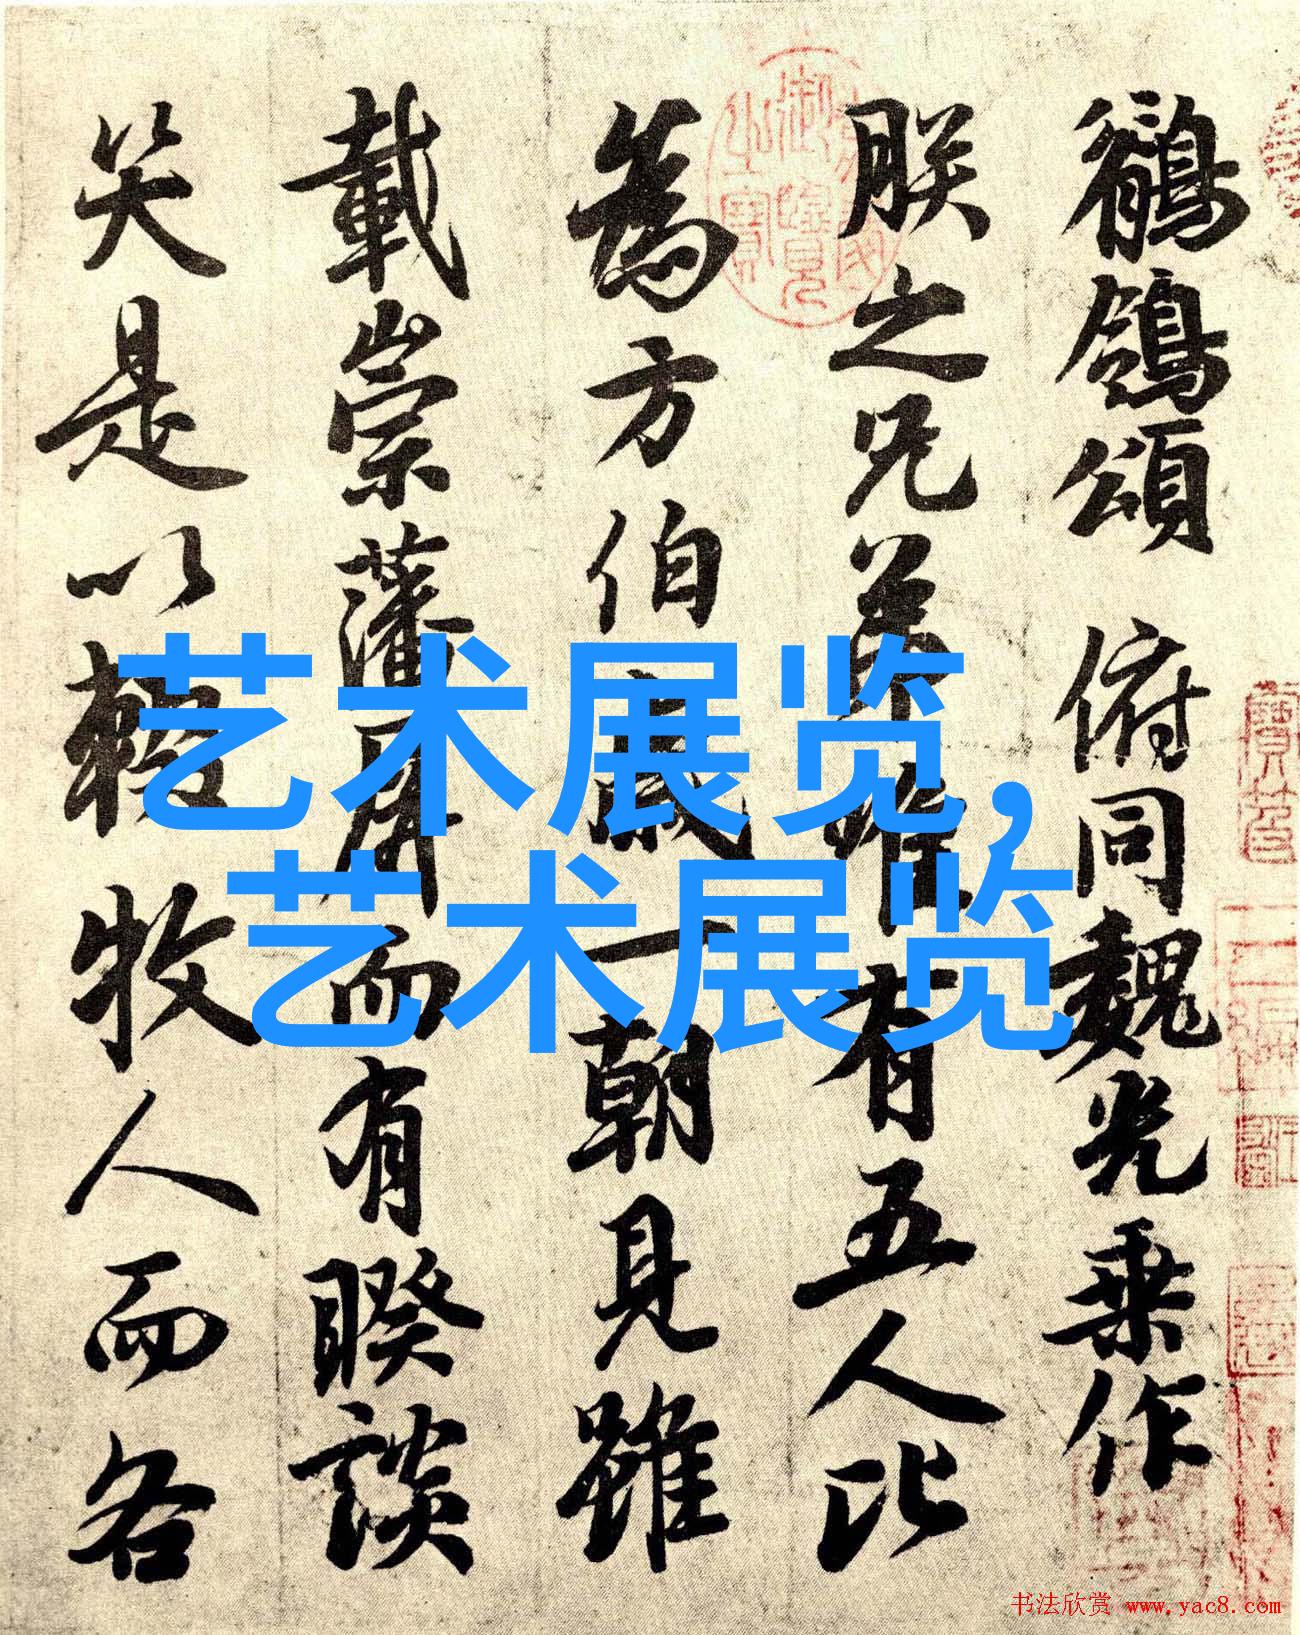 鶺鴒頌 俯同魏光乘作
朕之兄弟唯有五人比
為方伯歲一朝見雖
載崇藩屏而有睽談
笑是以輟牧人而各
艺术展览,
艺术展览
书法欣赏 www.yac8.com